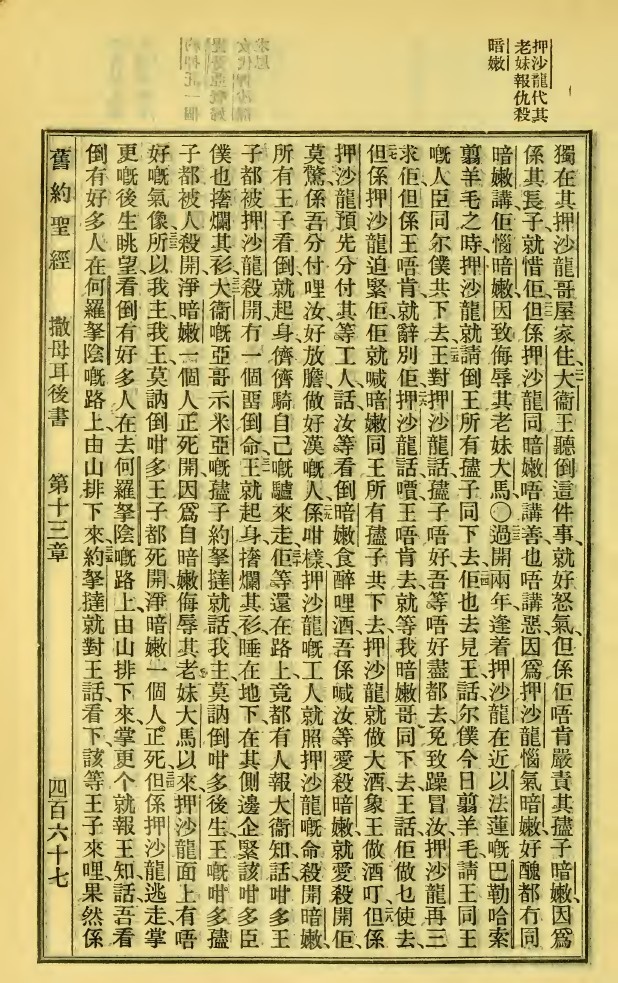 押沙龍代其
老妹報仇殺
暗嫩
獨在其押沙龍哥屋家住大衞王聽倒這件事就好怒氣但係佢唔肯嚴責其孻子暗嫩因爲
係其長子就惜佢但係押沙龍同暗嫩唔講善也唔講惡因爲押沙龍惱氣暗嫩好醜都冇同
暗嫩講佢惱暗嫩因致侮辱其老妹大馬〇過開兩年逢着押沙龍在近以法蓮嘅巴勒哈索
翦羊毛之時押沙龍就請倒王所有孻子同下去佢也去見王話尔僕今日翦羊毛請王同王
嘅人臣同尔僕共下去王對押沙龍話孻子唔好吾等唔好盡都去免致躁冒汝押沙龍再三
求佢但係王唔肯就辭別佢押沙龍話嚽王唔肯去就等我暗嫩哥同下去王話佢做乜使去
但係押沙龍迫緊佢佢就喊暗嫩同王所有孻子共下去押沙龍就做大酒象王做酒叮但係
押沙龍預先分付其等工人話汝等看倒暗嫩食醉哩酒吾係喊汝等愛殺暗嫩就愛殺開佢
莫驚係吾分付哩汝好放膽做好漢嘅人係咁樣押沙龍嘅工人就照押沙龍嘅命殺開暗嫩
所有王子看倒就起身儕儕騎自己嘅驢來走佢等還在路上竟都有人報大衞知話咁多王
子都被押沙龍殺開冇一個畱倒命王就起身撦爛其衫睡在地下在其側邊企緊該咁多臣
僕也撦爛其衫大衞嘅亞哥示米亞嘅孻子約拏撻就話我主莫訥倒咁多後生王嘅咁多孻
子都被人殺開淨暗嫩一個人正死開因爲自暗嫩侮辱其老妹大馬以來押沙龍面上有唔
好嘅氣像所以我主我王莫訥倒咁多王子都死開淨暗嫩一個人正死但係押沙龍逃走掌
更嘅後生眺望看倒有好多人在去何羅拏陰嘅路上由山排下來掌更个就報王知話吾看
倒有好多人在何羅拏陰嘅路上由山排下來約拏撻就對王話看下該等王子來哩果然係
舊約聖經 撒母耳後書 第十三章 四百六十七